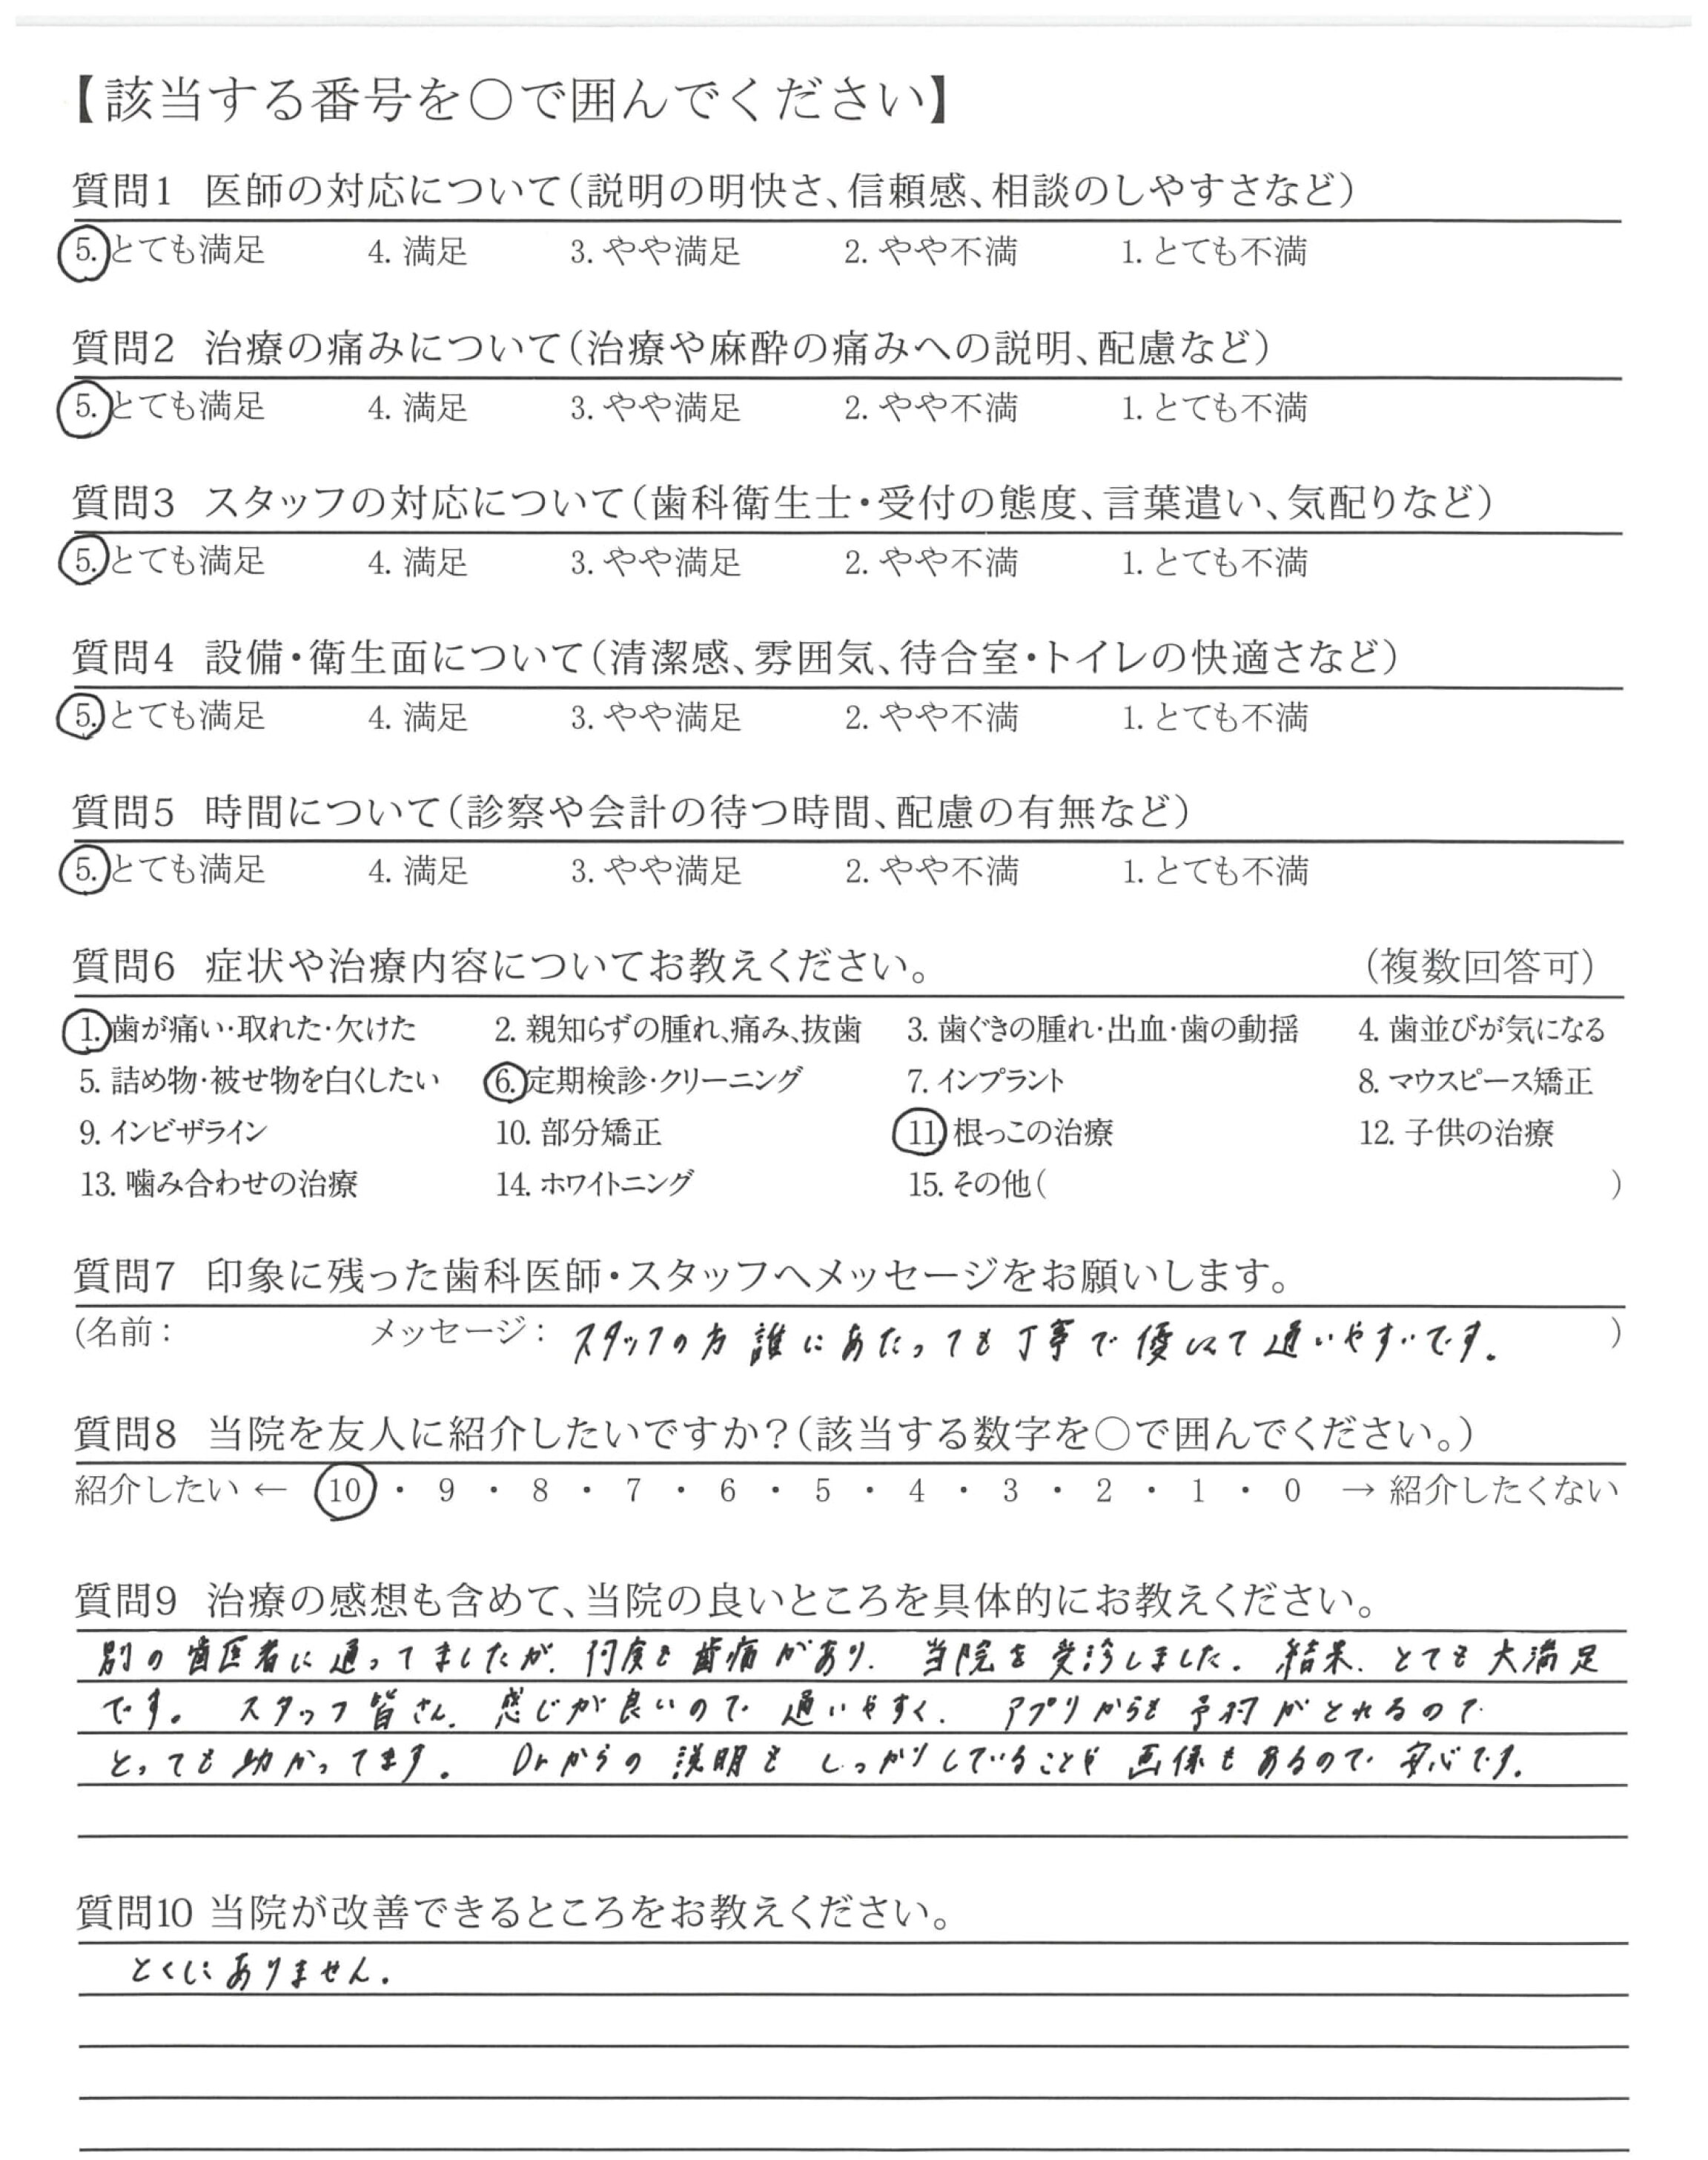 【該当する番号を○で囲んでください】
質問1 医師の対応について(説明の明快さ、信頼感、相談のしやすさなど)
5. とても満足 4. 満足 3. やや満足 2. やや不満 1. とても不満
質問2 治療の痛みについて(治療や麻酔の痛みへの説明、配慮など)
5. とても満足 4. 満足 3. やや満足 2. やや不満 1. とても不満
質問3 スタッフの対応について(歯科衛生士・受付の態度、言葉遣い、気配りなど)
5. とても満足 4. 満足 3. やや満足 2. やや不満 1. とても不満
質問4 設備・衛生面について(清潔感、雰囲気、待合室・トイレの快適さなど)
5. とても満足 4. 満足 3. やや満足 2. やや不満 1. とても不満
質問5 時間について(診察や会計の待つ時間、配慮の有無など)
5. とても満足 4. 満足 3. やや満足 2. やや不満 1. とても不満
質問6 症状や治療内容についてお教えください。 (複数回答可)
1. 歯が痛い・取れた・欠けた 2. 親知らずの腫れ、痛み、抜歯 3. 歯ぐきの腫れ・出血・歯の動揺 4. 歯並びが気になる
5. 詰め物・被せ物を白くしたい 6. 定期検診・クリーニング 7. インプラント 8. マウスピース矯正
9. インビザライン 10. 部分矯正 11. 根っこの治療 12. 子供の治療
13. 噛み合わせの治療 14. ホワイトニング 15. その他( )
質問7 印象に残った歯科医師・スタッフへメッセージをお願いします。
(名前: メッセージ: スタッフの方 誰にあたっても丁寧で優しくて通いやすいです。 )
質問8 当院を友人に紹介したいですか?(該当する数字を○で囲んでください。)
紹介したい ← 10 ・ 9 ・ 8 ・ 7 ・ 6 ・ 5 ・ 4 ・ 3 ・ 2 ・ 1 ・ 0 → 紹介したくない
質問9 治療の感想も含めて、当院の良いところを具体的にお教えください。
別の歯医者に通ってましたが、何度も歯痛があり、当院を受診しました。結果、とても大満足
です。 スタッフ皆さん、感じが良いので通いやすく、アプリからも予約がとれるので
とっても助かってます。 Drからの説明もしっかりしていることや画像もあるので安心です。
質問10 当院が改善できるところをお教えください。
とくにありません。